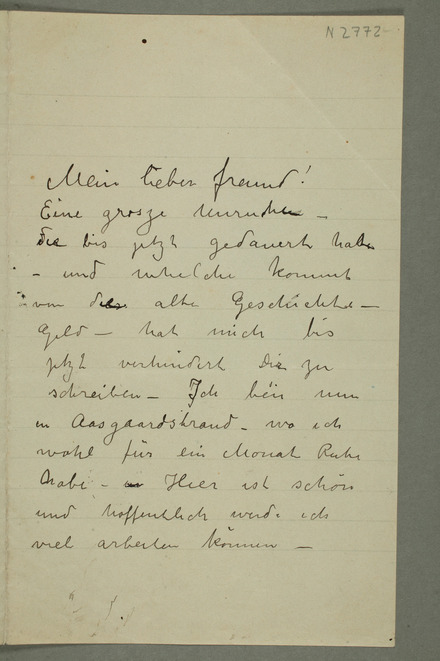 N 2772
Mein lieber freund!
Eine grosze Unruhe –
die bis jetzt gedauert habe
– und whelche kommt
von der alte Geschichte –
Geld – hat mich bis
jetzt verhindert Dir zu
schreiben – Ich bin nun
in Aasgaardstrand – wo ich
wohl für ein Monat Ruhe
habe – Hier ist schön
und hoffentlich werde ich
viel arbeiten können –